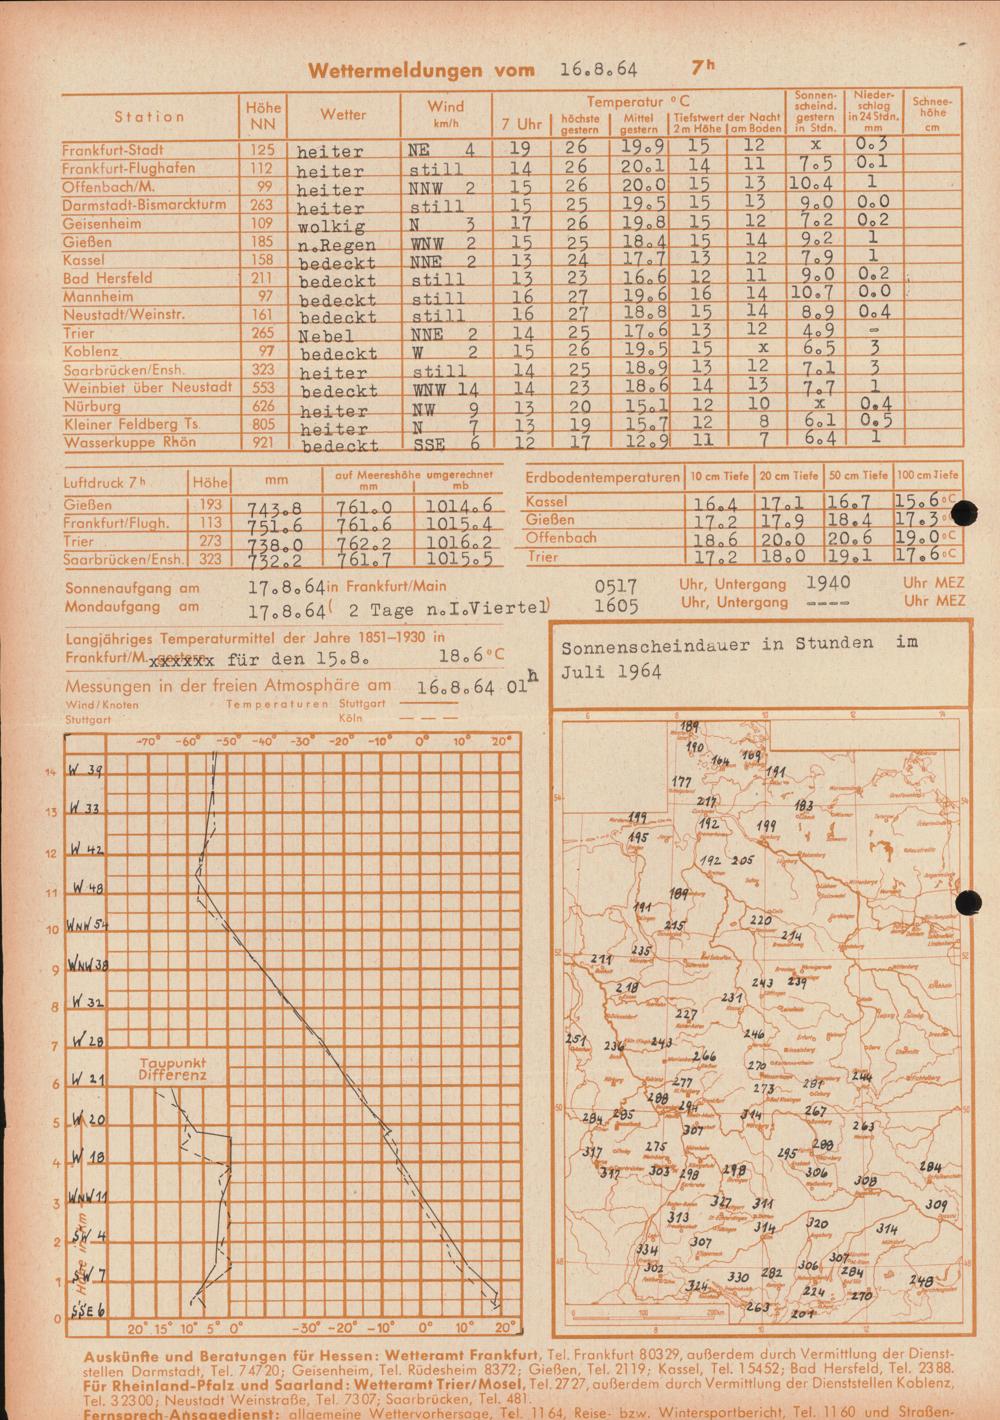 Wettermeldungen vom 16.8.64 7h
Station Höhe NN Wetter Wind km/h Temperatur °C Sonnen-scheind. gestern in Stdn. Nieder-schlag in 24 Stdn. mm Schnee-höhe cm
7 Uhr höchste gestern Mittel gestern Tiefstwert der Nacht 2 m Höhe am Boden
Frankfurt-Stadt 125 heiter NE 4 19 26 19.9 15 12 x 0.3
Frankfurt-Flughafen 112 heiter still 14 26 20.1 14 11 7.5 0.1
Offenbach/M. 99 heiter NNW 2 15 26 20.0 15 13 10.4 1
Darmstadt-Bismarckturm 263 heiter still 15 25 19.5 15 13 9.0 0.0
Geisenheim 109 wolkig N 3 17 26 19.8 15 12 7.2 0.2
Gießen 185 n.Regen WNW 2 15 25 18.4 15 14 9.2 1
Kassel 158 bedeckt NNE 2 13 24 17.7 13 12 7.9 1
Bad Hersfeld 211 bedeckt still 13 23 16.6 12 11 9.0 0.2
Mannheim 97 bedeckt still 16 27 19.6 16 14 10.7 0.0
Neustadt/Weinstr. 161 bedeckt still 16 27 18.8 15 14 8.9 0.4
Trier 265 Nebel NNE 2 14 25 17.6 13 12 4.9 -
Koblenz 97 bedeckt W 2 15 26 19.5 15 x 6.5 3
Saarbrücken/Ensh. 323 heiter still 14 25 18.9 13 12 7.1 3
Weinbiet über Neustadt 553 bedeckt WNW 14 14 23 18.6 14 13 7.7 1
Nürburg 626 heiter NW 9 13 20 15.1 12 10 x 0.4
Kleiner Feldberg Ts. 805 heiter N 7 13 19 15.7 12 8 6.1 0.5
Wasserkuppe Rhön 921 bedeckt SSE 6 12 17 12.9 11 7 6.4 1
Luftdruck 7 h Höhe mm auf Meereshöhe umgerechnet mm mb
Gießen 193 743.8 761.0 1014.6
Frankfurt/Flugh. 113 751.6 761.6 1015.4
Trier 273 738.0 762.2 1016.2
Saarbrücken/Ensh. 323 732.2 761.7 1015.5
Erdbodentemperaturen 10 cm Tiefe 20 cm Tiefe 50 cm Tiefe 100 cm Tiefe
Kassel 16.4 17.1 16.7 15.6 °C
Gießen 17.2 17.9 18.4 17.3 °C
Offenbach 18.6 20.0 20.6 19.0 °C
Trier 17.2 18.0 19.1 17.6 °C
Sonnenaufgang am 17.8.64 in Frankfurt/Main 0517 Uhr, Untergang 1940 Uhr MEZ
Mondaufgang am 17.8.64 ( 2 Tage n.I.Viertel) 1605 Uhr, Untergang ---- Uhr MEZ
Langjähriges Temperaturmittel der Jahre 1851–1930 in
Frankfurt/M. xxxxxx für den 15.8. 18.6 °C
Messungen in der freien Atmosphäre am 16.8.64 01h
Wind/Knoten Temperaturen Stuttgart
Stuttgart Köln
Sonnenscheindauer in Stunden im
Juli 1964
-70° -60° -50° -40° -30° -20° -10° 0° 10° 20°
14 W 39
13 W 33
12 W 42
11 W 48
10 WNW 54
9 WNW 38
8 W 32
7 W 28
Taupunkt
Differenz
6 W 21
5 W 20
4 W 18
3 WNW 11
2 SW 4
1 SW 7
0 SSE 6
Höhe in km
20° 15° 10° 5° 0° -30° -20° -10° 0° 10° 20°
6 8 10 12 14
189
190
164 169
191
177
217 183
199 192 199
195
192 205
189
191
215 220
214
235
211
243 239
218 231
227
246
251 236 243
266 270
277 273 281 244
288
294 314 267
284 285
307 263
288
317 275 295
317 303 298 298 306 284
308
327 311 309
313 314 320 314
307
334 307
302 306 284
324 330 282 248
224 270
263 201
Auskünfte und Beratungen für Hessen: Wetteramt Frankfurt, Tel. Frankfurt 80329, außerdem durch Vermittlung der Dienst-
stellen Darmstadt, Tel. 74720; Geisenheim, Tel. Rüdesheim 8372; Gießen, Tel. 2119; Kassel, Tel. 15452; Bad Hersfeld, Tel. 2388.
Für Rheinland-Pfalz und Saarland: Wetteramt Trier/Mosel, Tel. 2727, außerdem durch Vermittlung der Dienststellen Koblenz,
Tel. 32300; Neustadt Weinstraße, Tel. 7307; Saarbrücken, Tel. 481.
Fernsprech-Ansagedienst: allgemeine Wettervorhersage, Tel. 1164, Reise- bzw. Wintersportbericht, Tel. 1160 und Straßen-